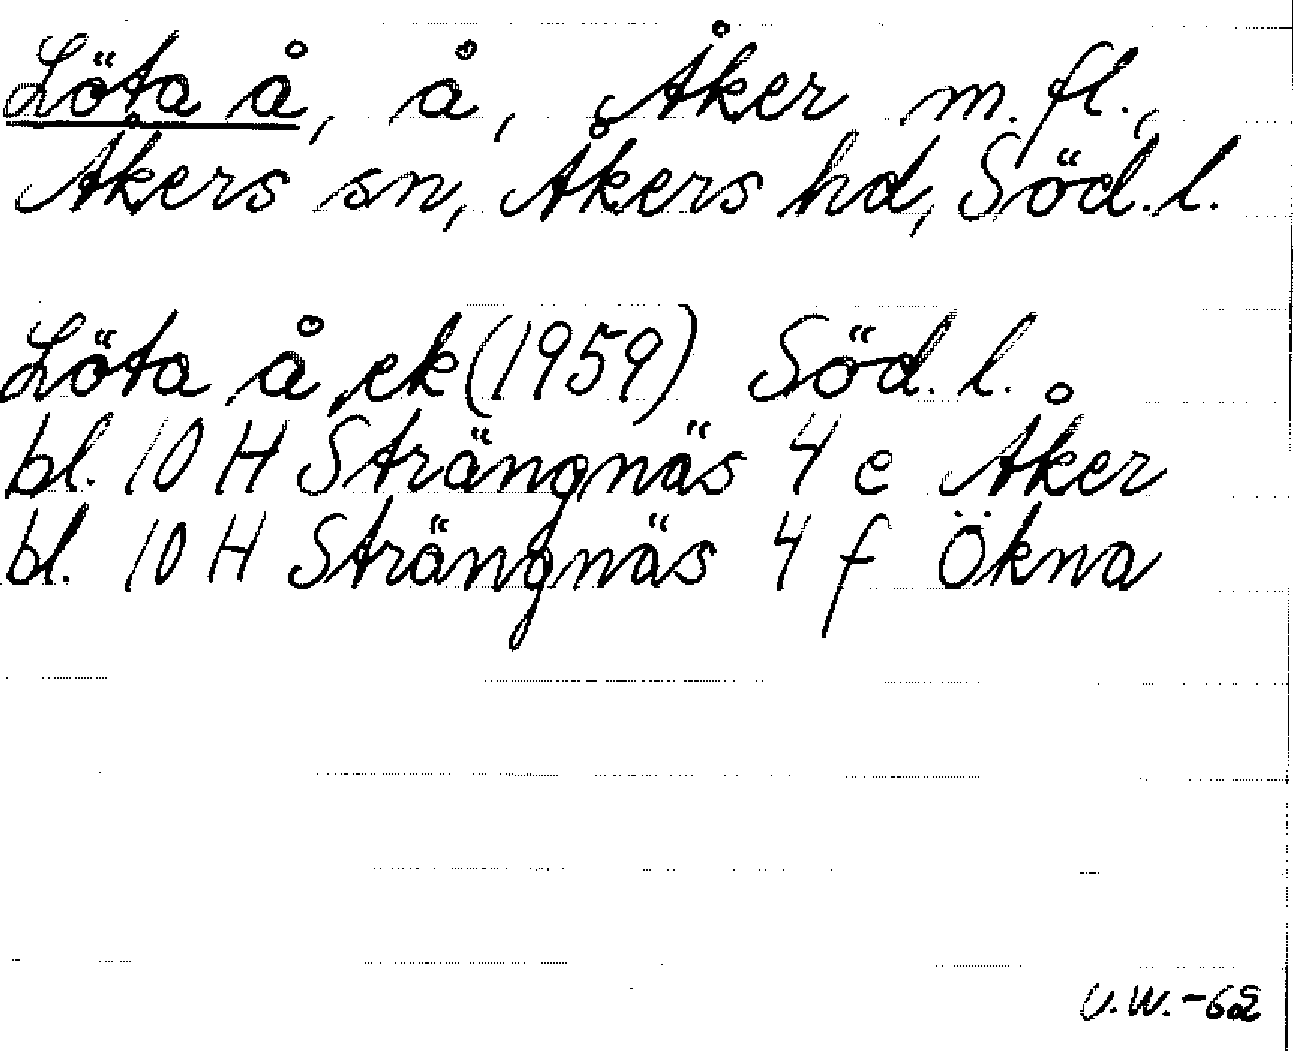 Löta å, å, Åker m.fl.,
Åkers sn, Åkers hd, Söd.l.
Löta å ek (1959) Söd.l.
bl. 10 H Strängnäs 4 e Åker
bl. 10 H Strängnäs 4 f Ökna
V.W.-62